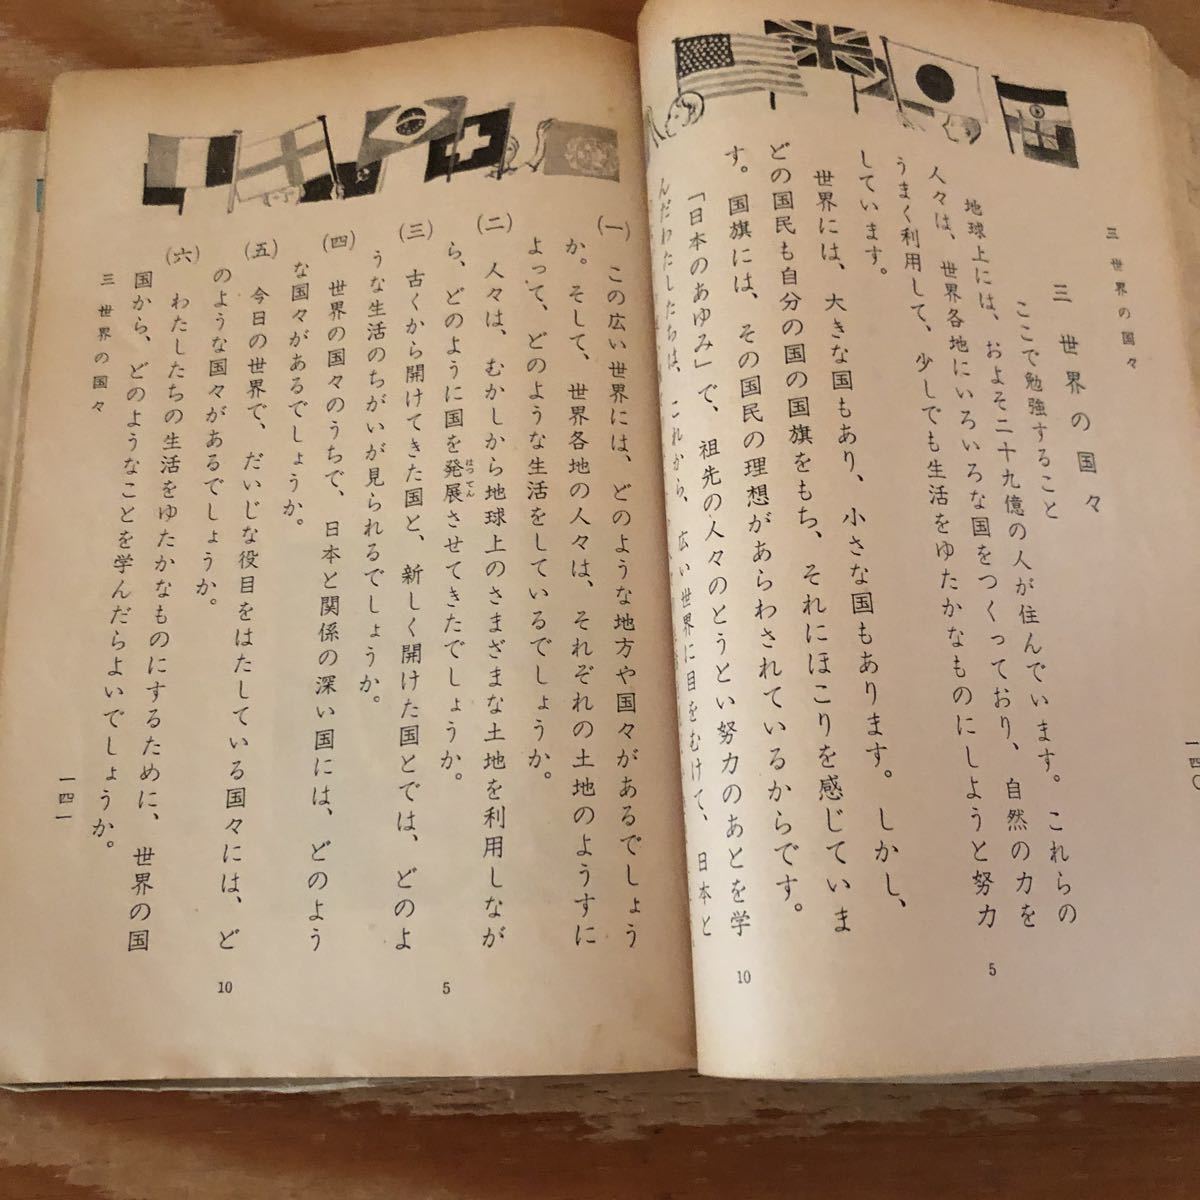 三 世界の国々
三 世界の国々
ここで勉強すること
地球上には、およそ二十九億の人が住んでいます。これらの
人々は、世界各地にいろいろな国をつくっており、自然の力を
うまく利用して、少しでも生活をゆたかなものにしようと努力
しています。
世界には、大きな国もあり、小さな国もあります。しかし、
どの国民も自分の国の国旗をもち、それにほこりを感じていま
す。国旗には、その国民の理想があらわされているからです。
「日本のあゆみ」で、祖先の人々のとうとい努力のあとを学
んだわたしたちは、これから、広い世界に目をむけて、日本と
5
10
一四〇
(一) この広い世界には、どのような地方や国々があるでしょう
か。そして、世界各地の人々は、それぞれの土地のようすに
よって、どのような生活をしているでしょうか。
(二) 人々は、むかしから地球上のさまざまな土地を利用しなが
ら、どのように国を発展させてきたでしょうか。
はってん
(三) 古くから開けてきた国と、新しく開けた国とでは、どのよ
うな生活のちがいが見られるでしょうか。
(四) 世界の国々のうちで、日本と関係の深い国には、どのよう
な国々があるでしょうか。
(五) 今日の世界で、だいじな役目をはたしている国々には、ど
のような国々があるでしょうか。
(六) わたしたちの生活をゆたかなものにするために、世界の国
国から、どのようなことを学んだらよいでしょうか。
三 世界の国々
5
10
一四一